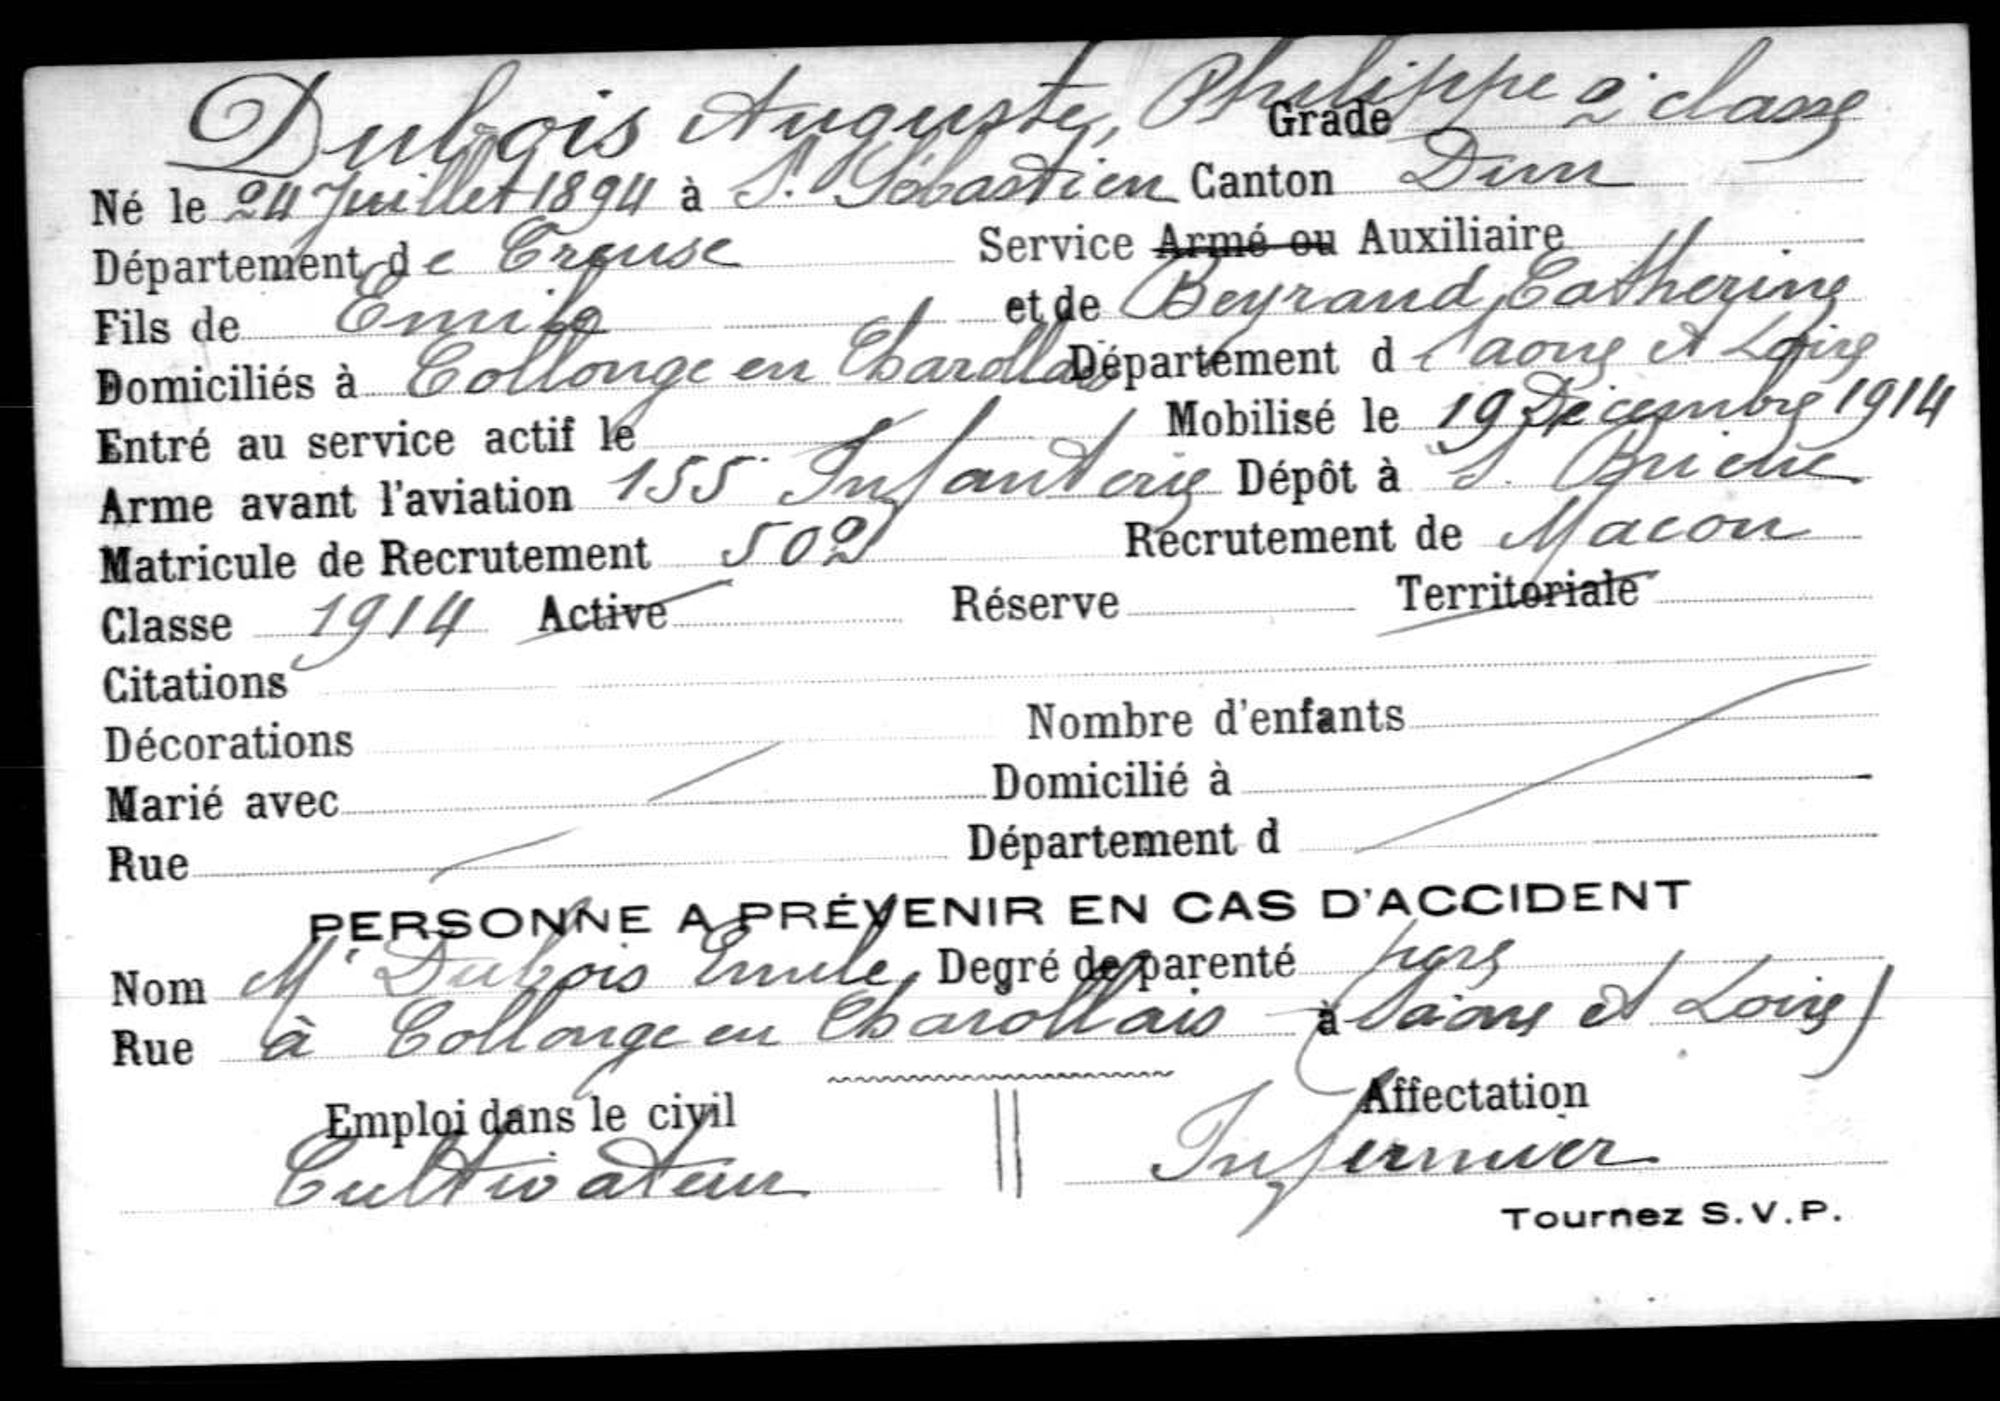 Dubois Auguste, Philippe Grade 2e classe
Né le 24 Juillet 1894 à St Sébastien Canton Dun
Département de Creuse Service Armé ou Auxiliaire
Fils de Emile et de Beyrand, Catherine
Domiciliés à Collonge en Charollais Département d Saone et Loire
Entré au service actif le Mobilisé le 19 Décembre 1914
Arme avant l'aviation 155e Infanterie Dépôt à St Brieuc
Matricule de Recrutement 502 Recrutement de Macon
Classe 1914 Active Réserve Territoriale
Citations
Décorations Nombre d'enfants
Marié avec Domicilié à
Rue Département d
PERSONNE A PRÉVENIR EN CAS D'ACCIDENT
Nom Mr Dubois Emile, Degré de parenté père
Rue à Collonge en Charollais à (Saône et Loire)
Emploi dans le civil Affectation
Cultivateur Infirmier
Tournez S.V.P.